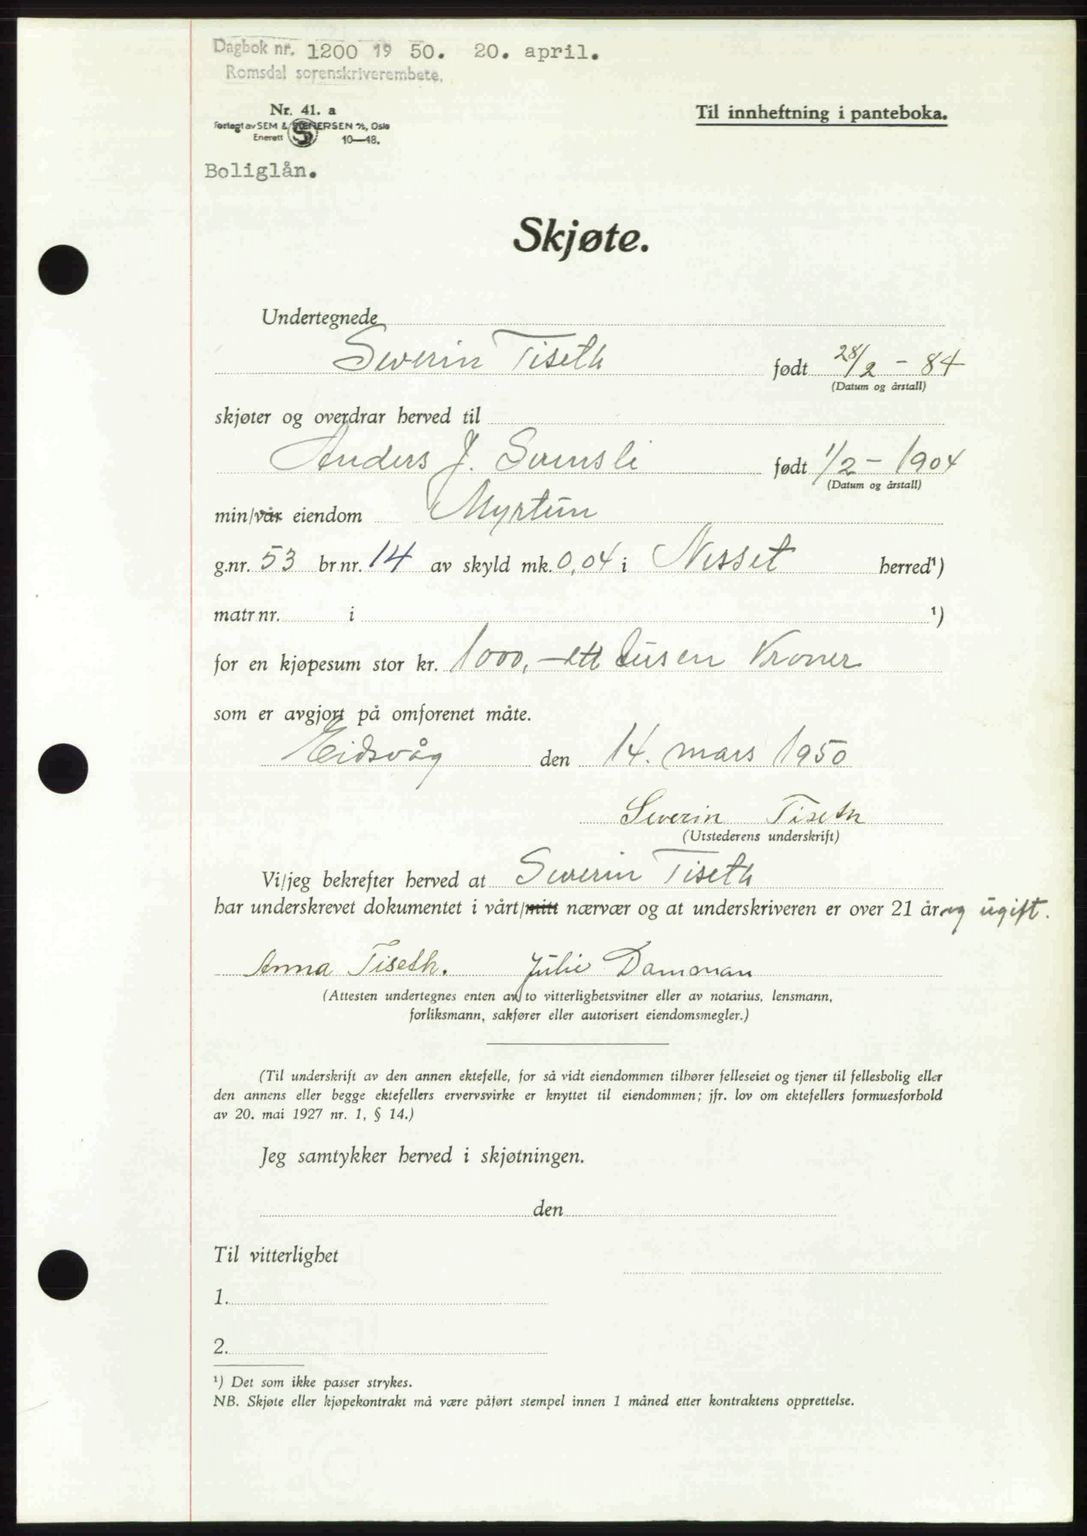 Dagbok nr. 1200 19 50. 20. april.
Romsdal sorenskriverembete.
Nr. 41. a
Forlagt av SEM & STENERSEN A/S, Oslo
Enerett 10—48.
Til innheftning i panteboka.
Boliglån.
Skjøte.
Undertegnede
Severin Tiseth født 28/2 - 84
(Datum og årstall)
skjøter og overdrar herved til
Anders J. Svensli født 1/2 - 1904
(Datum og årstall)
min/vår eiendom Myrtun
g.nr. 53 br.nr. 14 av skyld mk. 0,04 i Nesset herred¹)
matr.nr. i ¹)
for en kjøpesum stor kr. 1000,- ett tusen Kroner
som er avgjort på omforenet måte.
Eidsvåg den 14. mars 1950
Severin Tiseth
(Utstederens underskrift)
Vi/jeg bekrefter herved at Severin Tiseth
har underskrevet dokumentet i vårt/mitt nærvær og at underskriveren er over 21 år og ugift.
Anna Tiseth. Julie
(Attesten undertegnes enten av to vitterlighetsvitner eller av notarius, lensmann,
forliksmann, sakfører eller autorisert eiendomsmegler.)
(Til underskrift av den annen ektefelle, for så vidt eiendommen tilhører felleseiet og tjener til fellesbolig eller
den annens eller begge ektefellers ervervsvirke er knyttet til eiendommen; jfr. lov om ektefellers formuesforhold
av 20. mai 1927 nr. 1, § 14.)
Jeg samtykker herved i skjøtningen.
den
Til vitterlighet
1.
2.
¹) Det som ikke passer strykes.
NB. Skjøte eller kjøpekontrakt må være påført stempel innen 1 måned etter kontraktens opprettelse.